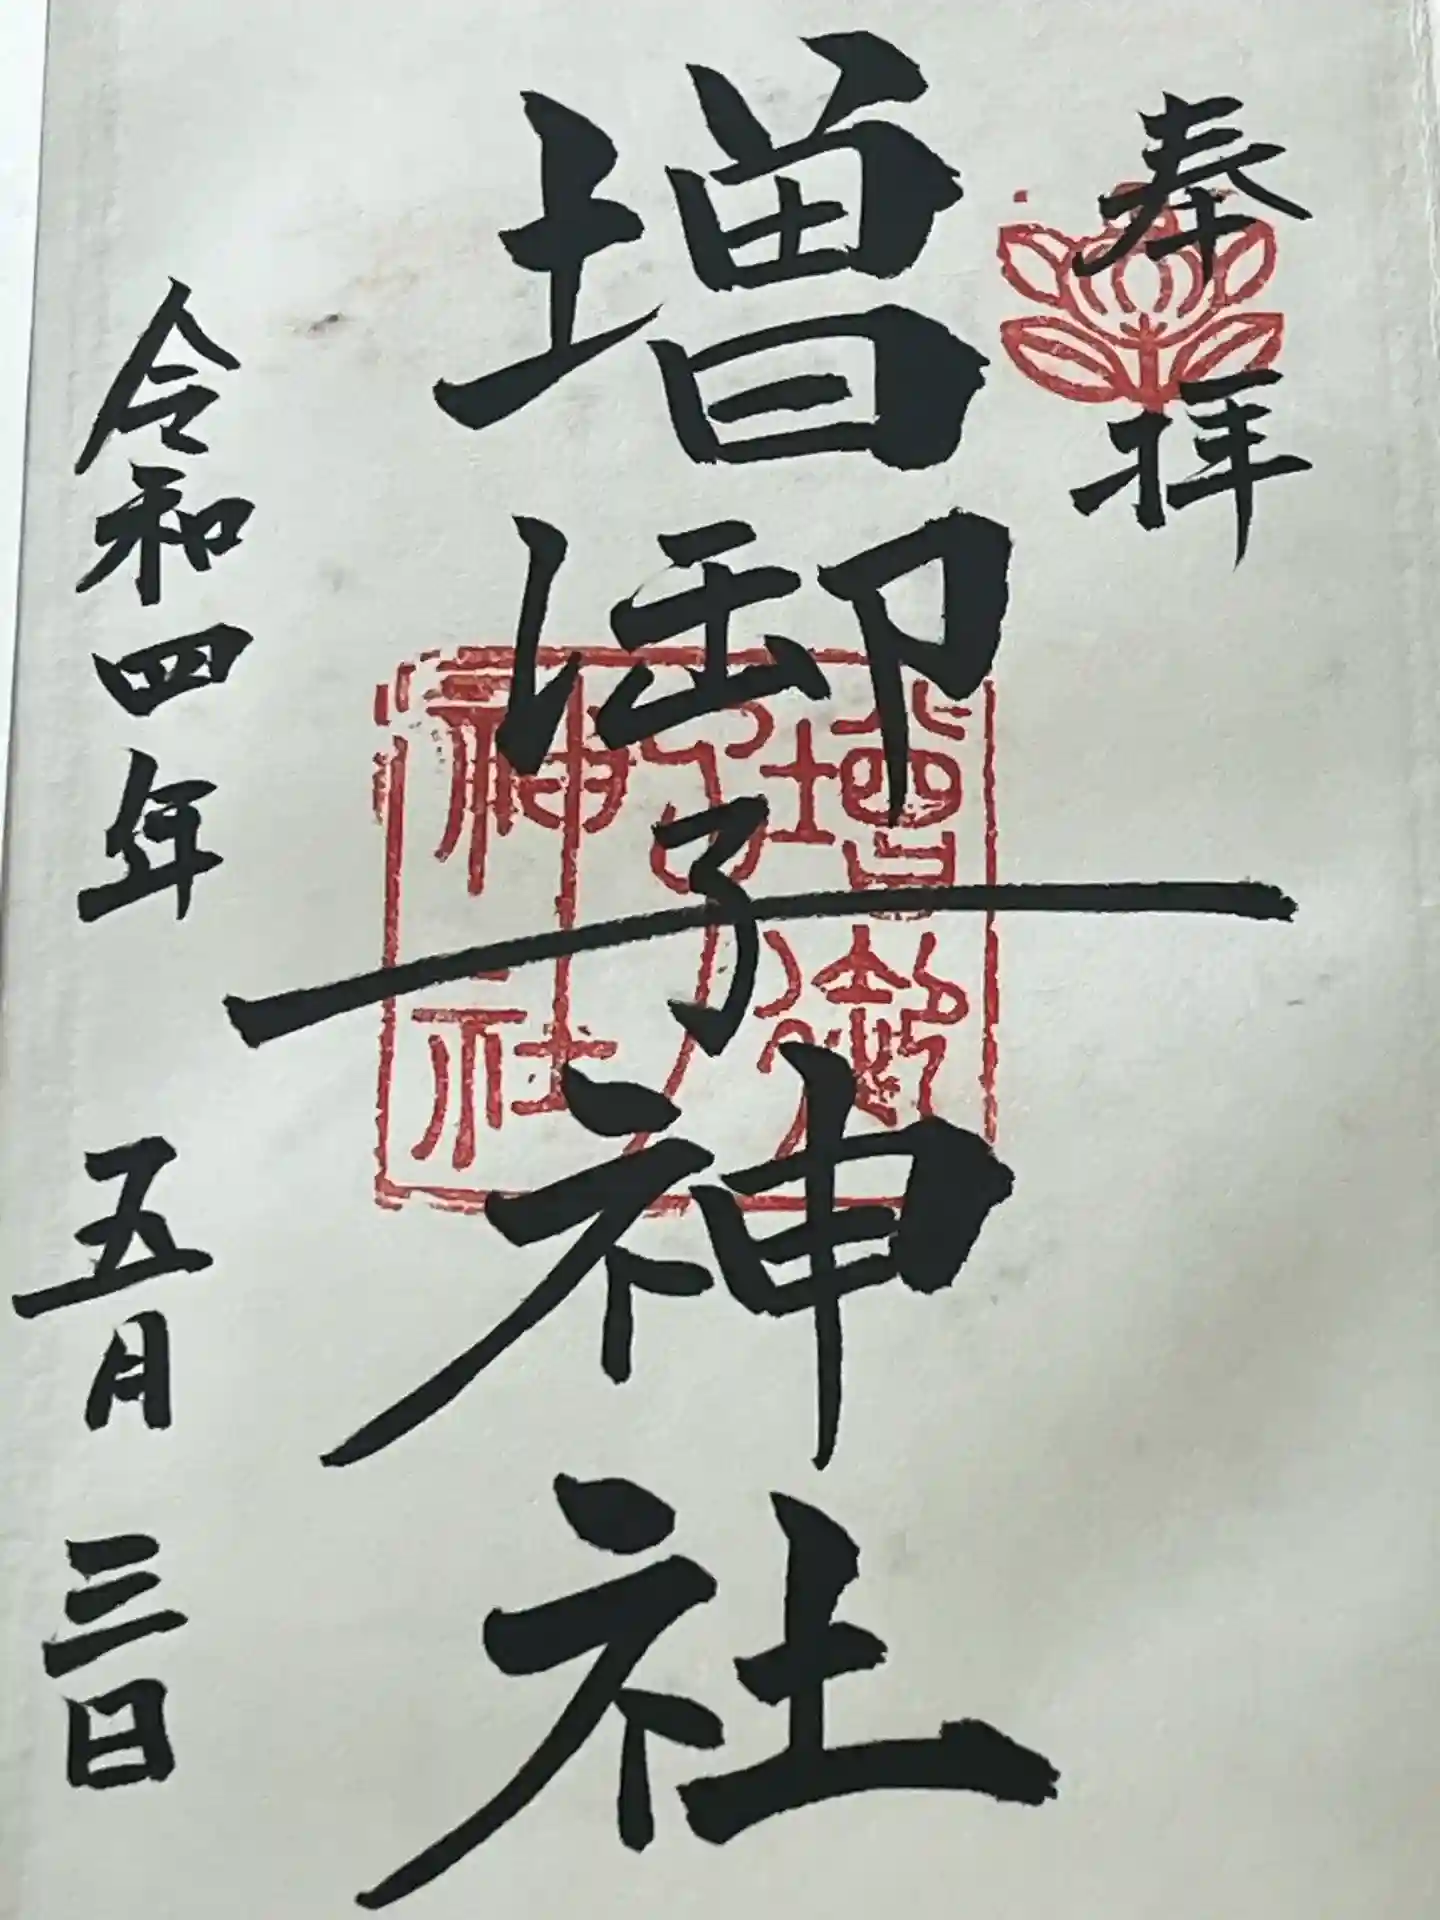 奉拝
増御子神社
増御子神社
令和四年 五月 三日